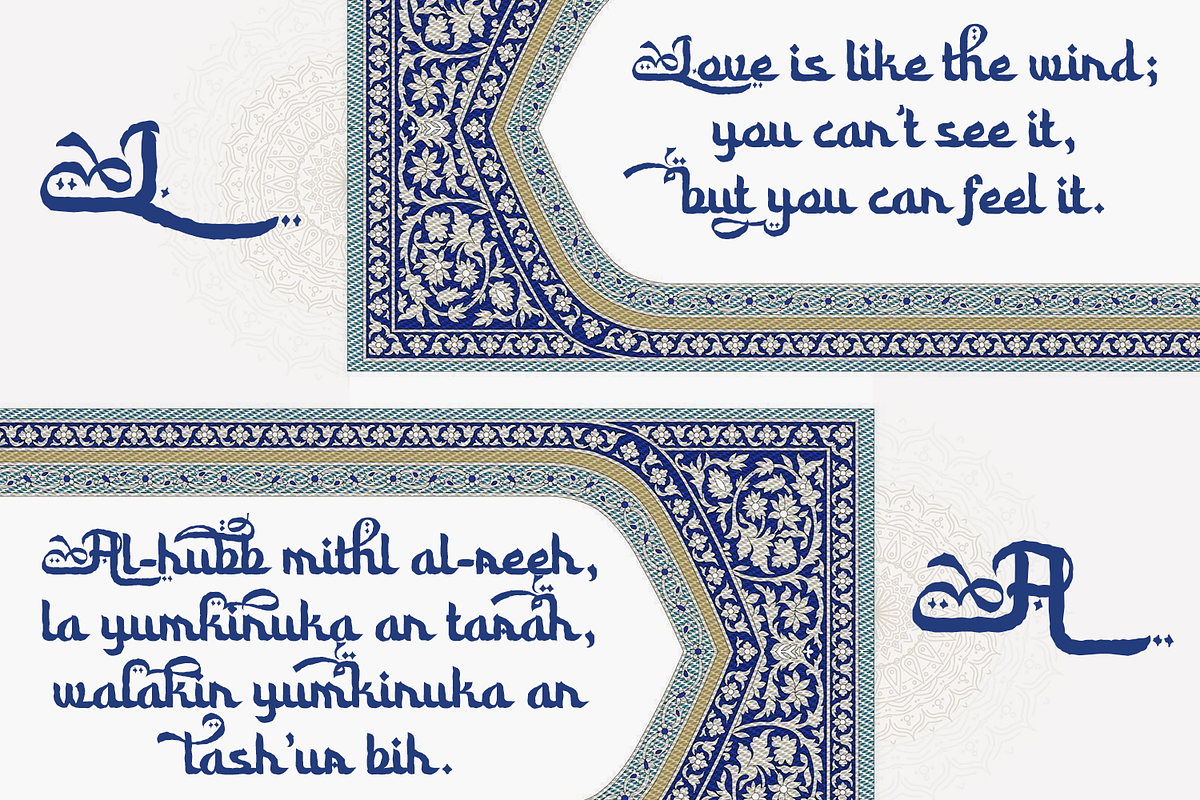 L
Love is like the wind;
you can't see it,
but you can feel it.
Al-hubb mithl al-reeh,
la yumkinuka an tarah,
walakin yumkinuka an
tash'ur bih.
A